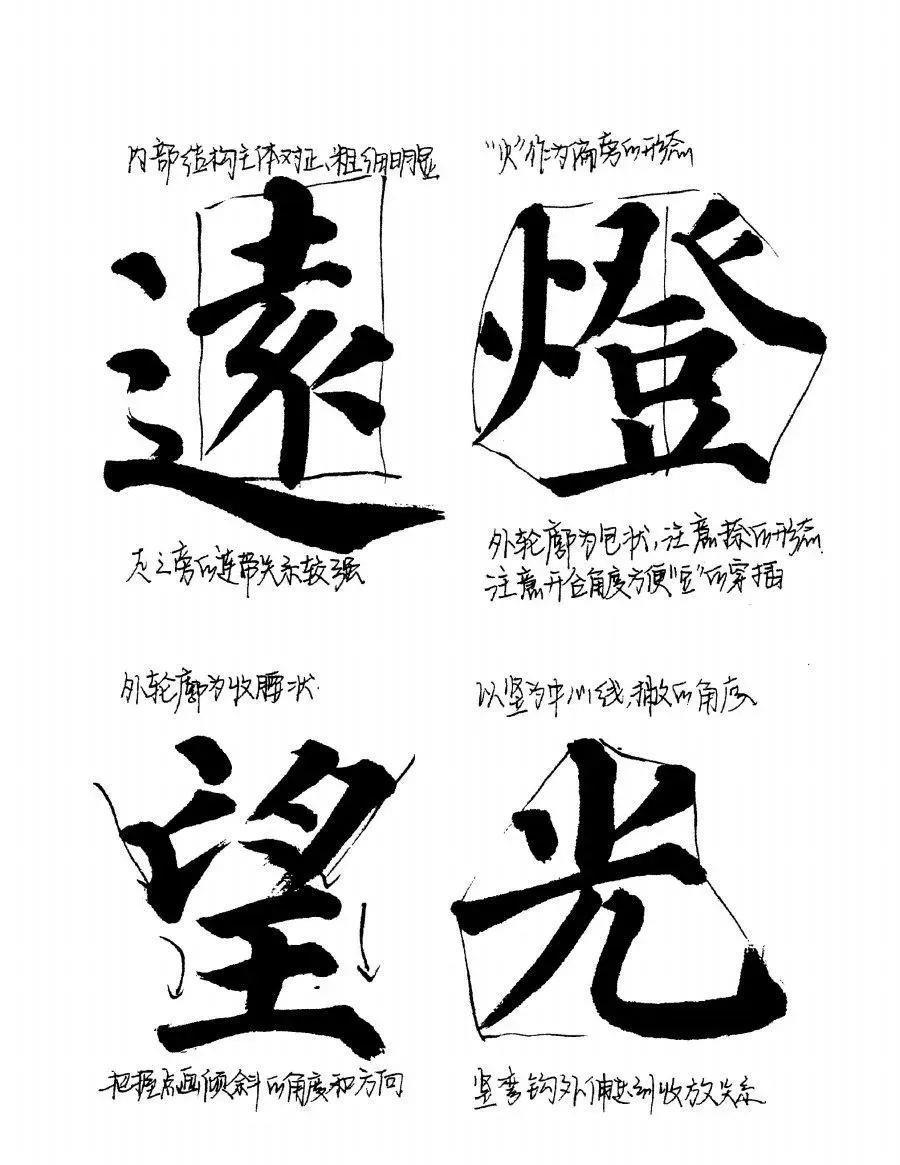 内部结构主体对正、粗细明显
遠
走之旁的连带关系较强
"火"作为偏旁的形态
燈
外轮廓为包状,注意捺的形态
注意开合角度方便"豆"的穿插
外轮廓为收腰状.
望
把握点画倾斜的角度和方向
以竖为中心线,撇的角度
光
竖弯钩外伸达到收放关系